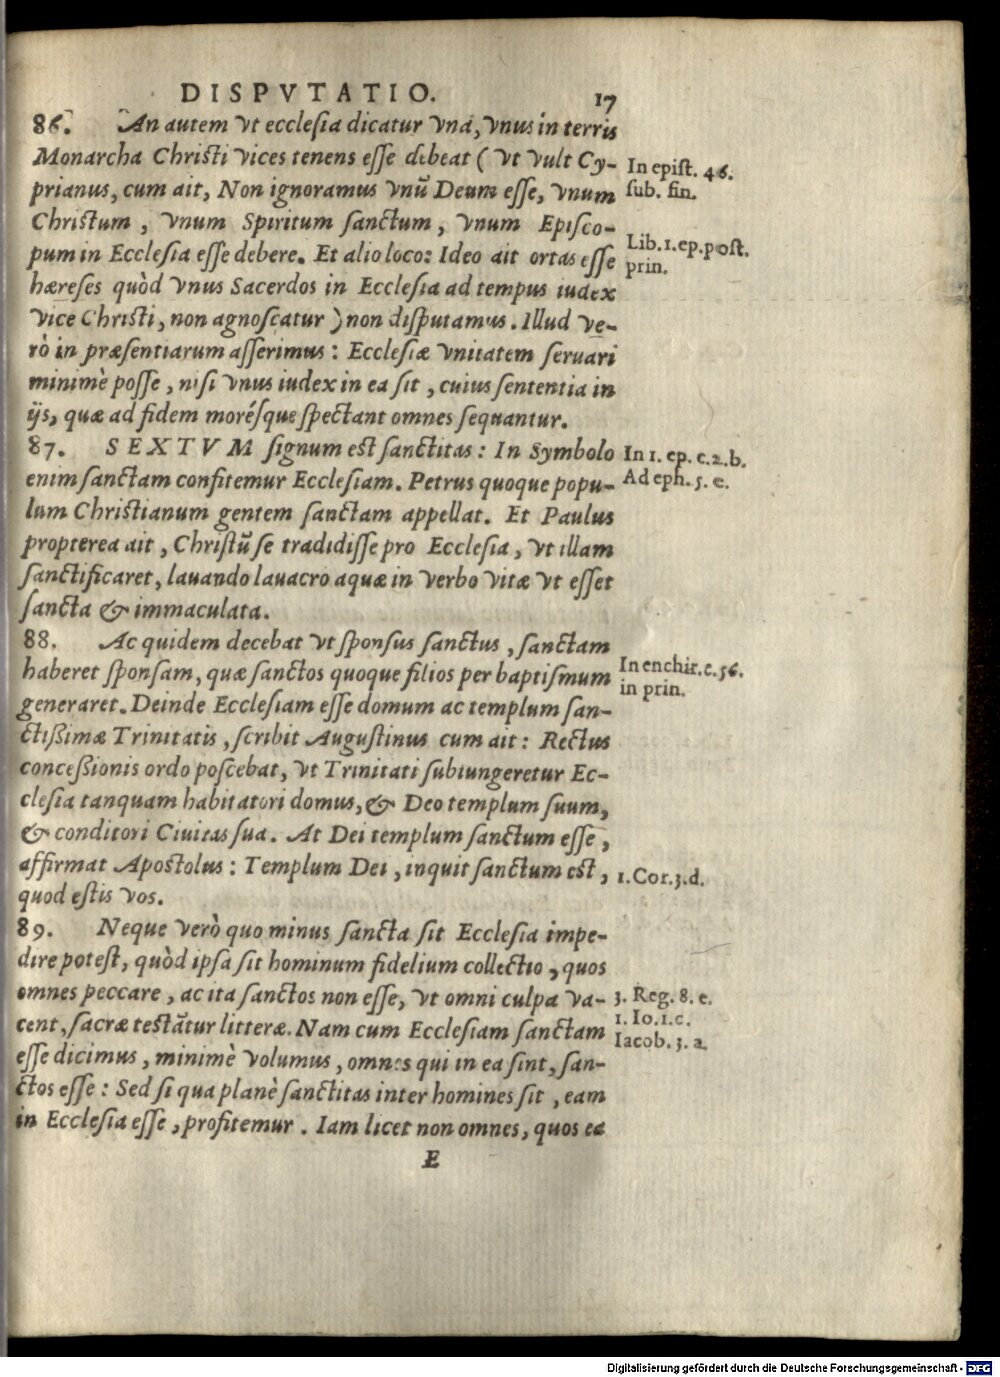 DISPVTATIO. 17
86. An autem vt ecclesia dicatur vna, vnus in terris
Monarcha Christi vices tenens esse debeat ( vt vult Cy-
prianus, cum ait, Non ignoramus vnũ Deum esse, vnum
Christum, vnum Spiritum sanctum, vnum Episco-
pum in Ecclesia esse debere. Et alio loco: Ideo ait ortas esse
hæreses quòd vnus Sacerdos in Ecclesia ad tempus iudex
vice Christi, non agnoscatur ) non disputamus. Illud ve-
rò in præsentiarum asserimus: Ecclesiæ vnitatem seruari
minimè posse, nisi vnus iudex in ea sit, cuius sententia in
ijs, quæ ad fidem morésque spectant omnes sequantur.
In epist. 46.
sub. fin.
Lib. 1. ep. post.
prin.
87. SEXTVM signum est sanctitas: In Symbolo
enim sanctam confitemur Ecclesiam. Petrus quoque popu-
lum Christianum gentem sanctam appellat. Et Paulus
propterea ait, Christũ se tradidisse pro Ecclesia, vt illam
sanctificaret, lauando lauacro aquæ in verbo vitæ vt esset
sancta & immaculata.
In 1. ep. c. 2. b.
Ad eph. 5. e.
88. Ac quidem decebat vt sponsus sanctus, sanctam
haberet sponsam, quæ sanctos quoque filios per baptismum
generaret. Deinde Ecclesiam esse domum ac templum san-
ctißimæ Trinitatis, scribit Augustinus cum ait: Rectus
conceßionis ordo poscebat, vt Trinitati subiungeretur Ec-
clesia tanquam habitatori domus, & Deo templum suum,
& conditori Ciuitas sua. At Dei templum sanctum esse,
affirmat Apostolus: Templum Dei, inquit sanctum est,
quod estis vos.
In enchir. c. 56.
in prin.
1. Cor. 3. d.
89. Neque verò quo minus sancta sit Ecclesia impe-
dire potest, quòd ipsa sit hominum fidelium collectio, quos
omnes peccare, ac ita sanctos non esse, vt omni culpa va-
cent, sacræ testãtur litteræ. Nam cum Ecclesiam sanctam
esse dicimus, minimè volumus, omnes qui in ea sint, san-
ctos esse: Sed si qua planè sanctitas inter homines sit, eam
in Ecclesia esse, profitemur. Iam licet non omnes, quos ea
3. Reg. 8. e.
1. Io. 1. c.
Iacob. 3. a.
E
Digitalisierung gefördert durch die Deutsche Forschungsgemeinschaft - DFG